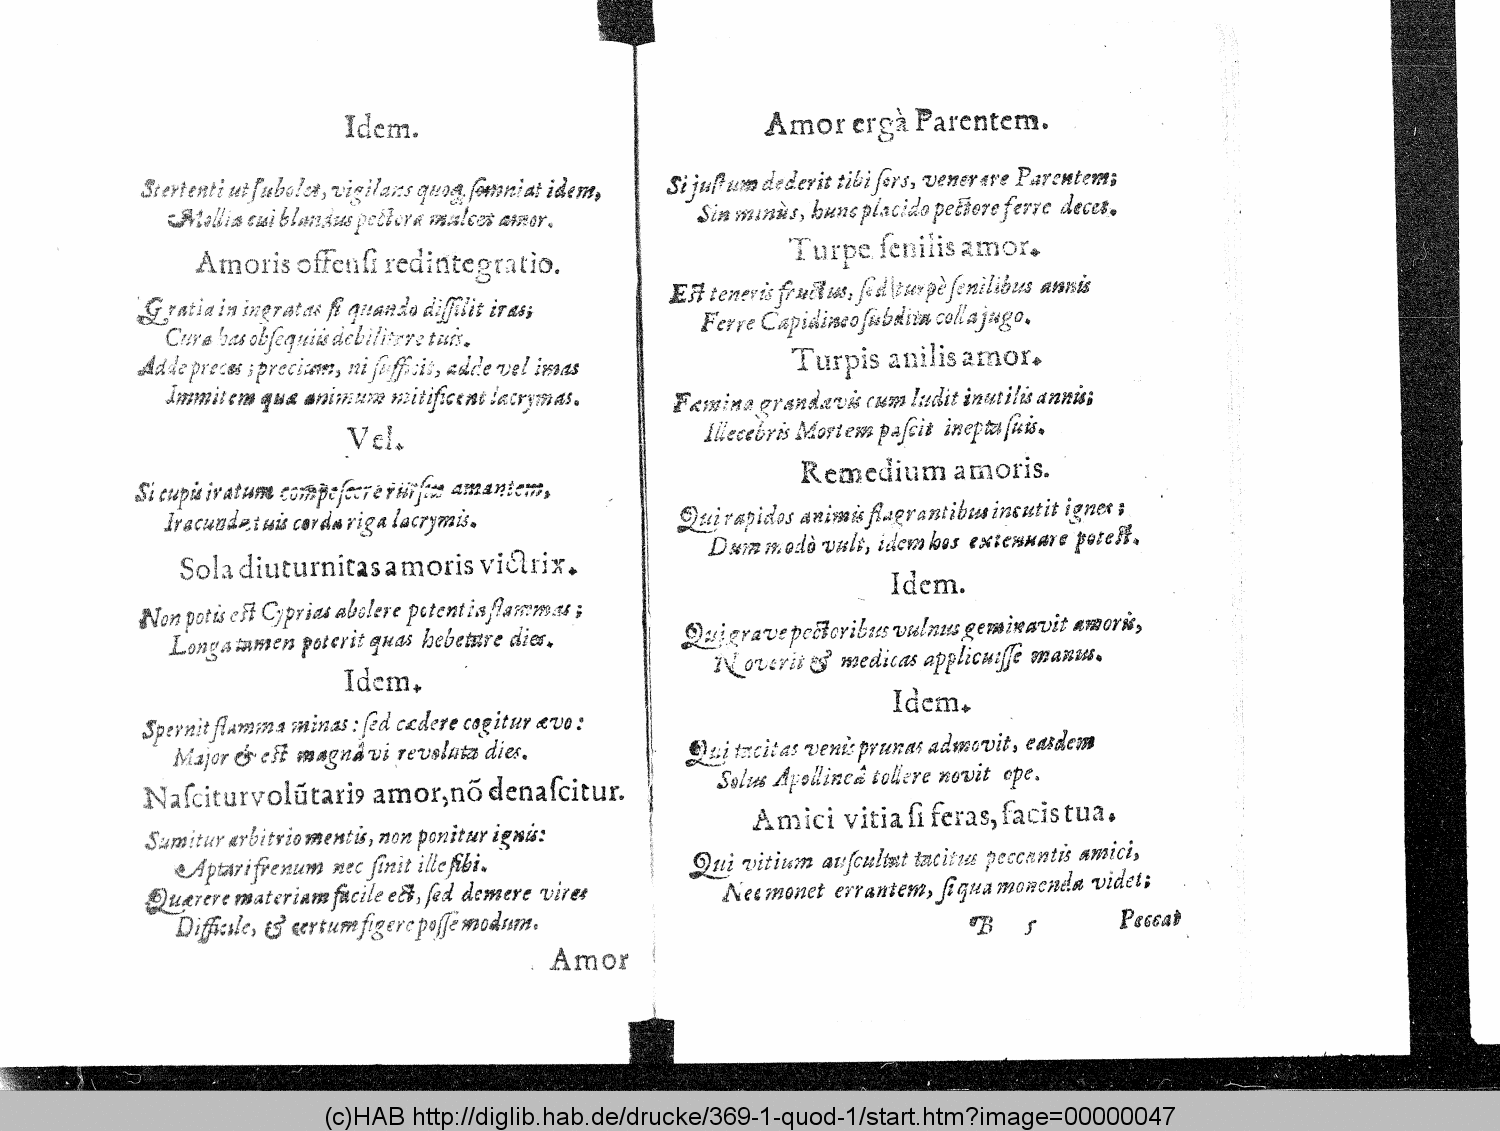 Idem.
Stertenti ut ſubolet, vigilans quoq; ſomniat idem,
Mollia cui blandus pectora mulcet amor.
Amoris offenſi redintegratio.
Gratia in ingratas ſi quando diſſilit iras;
Cura has obſequiis debilitare tuis.
Adde preces; precium, ni ſufficit, adde vel imas
Immitem quæ animum mitificent lacrymas.
Vel.
Si cupis iratum compeſcere rurſus amantem,
Iracunda tuis corda riga lacrymis.
Sola diuturnitas amoris victrix.
Non potis eſt Cyprias abolere potentia flammas;
Longa tamen poterit quas hebetare dies.
Idem.
Spernit flamma minas: ſed cædere cogitur ævo:
Major & eſt magnâ vi revoluta dies.
Naſcitur volũtariꝰ amor, nõ denaſcitur.
Sumitur arbitrio mentis, non ponitur ignis:
Aptari frenum nec ſinit ille ſibi.
Quærere materiam facile eſt, ſed demere vires
Difficile, & certum figere poſſe modum.
Amor
Amor ergà Parentem.
Si juſtum dederit tibi ſors, venerare Parentem;
Sin minùs, hunc placido pectore ferre decet.
Turpe ſenilis amor.
Eſt teneris fructus, ſed turpè ſenilibus annis
Ferre Cupidineo ſubdita colla jugo.
Turpis anilis amor.
Fæmina grandævis cum ludit inutilis annis;
Illecebris Mortem paſcit inepta ſuis.
Remedium amoris.
Qui rapidos animis flagrantibus incutit ignes;
Dummodò vult, idem hos extenuare poteſt.
Idem.
Qui grave pectoribus vulnus geminavit amoris,
Noverit & medicas applicuiſſe manus.
Idem.
Qui tacitas venis prunas admovit, easdem
Solus Apollineâ tollere novit ope.
Amici vitia ſi feras, facis tua.
Qui vitium auſcultat tacitus peccantis amici,
Nec monet errantem, ſi qua monenda videt;
B 5
Peccat
(c)HAB http://diglib.hab.de/drucke/369-1-quod-1/start.htm?image=00000047